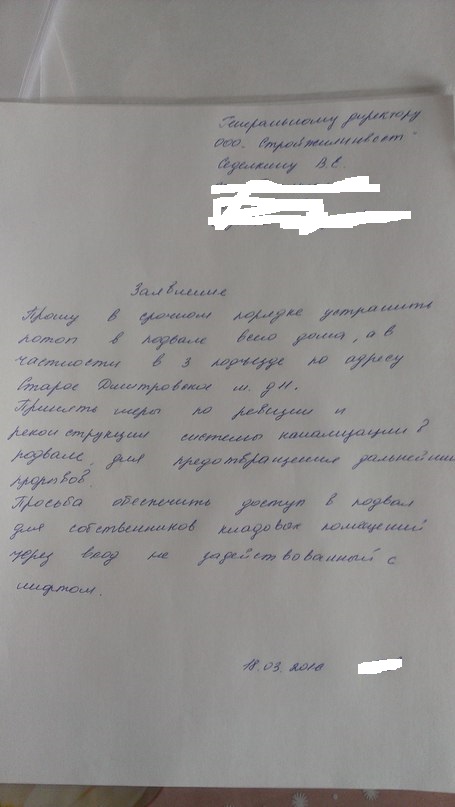 Генеральному директору
ООО "Стройжилинвест"
Седелкину В.С.
Заявление
Прошу в срочном порядке устранить
потоп в подвале всего дома, а в
частности в 3 подъезде по адресу
Старое Дмитровское ш. д 11.
Принять меры по ревизии и
реконструкции системы канализации в
подвале, для предотвращения дальнейших
прорывов.
Просьба обеспечить доступ в подвал
для собственников кладовых помещений
через вход не задействованный с
лифтом.
18.03.2016